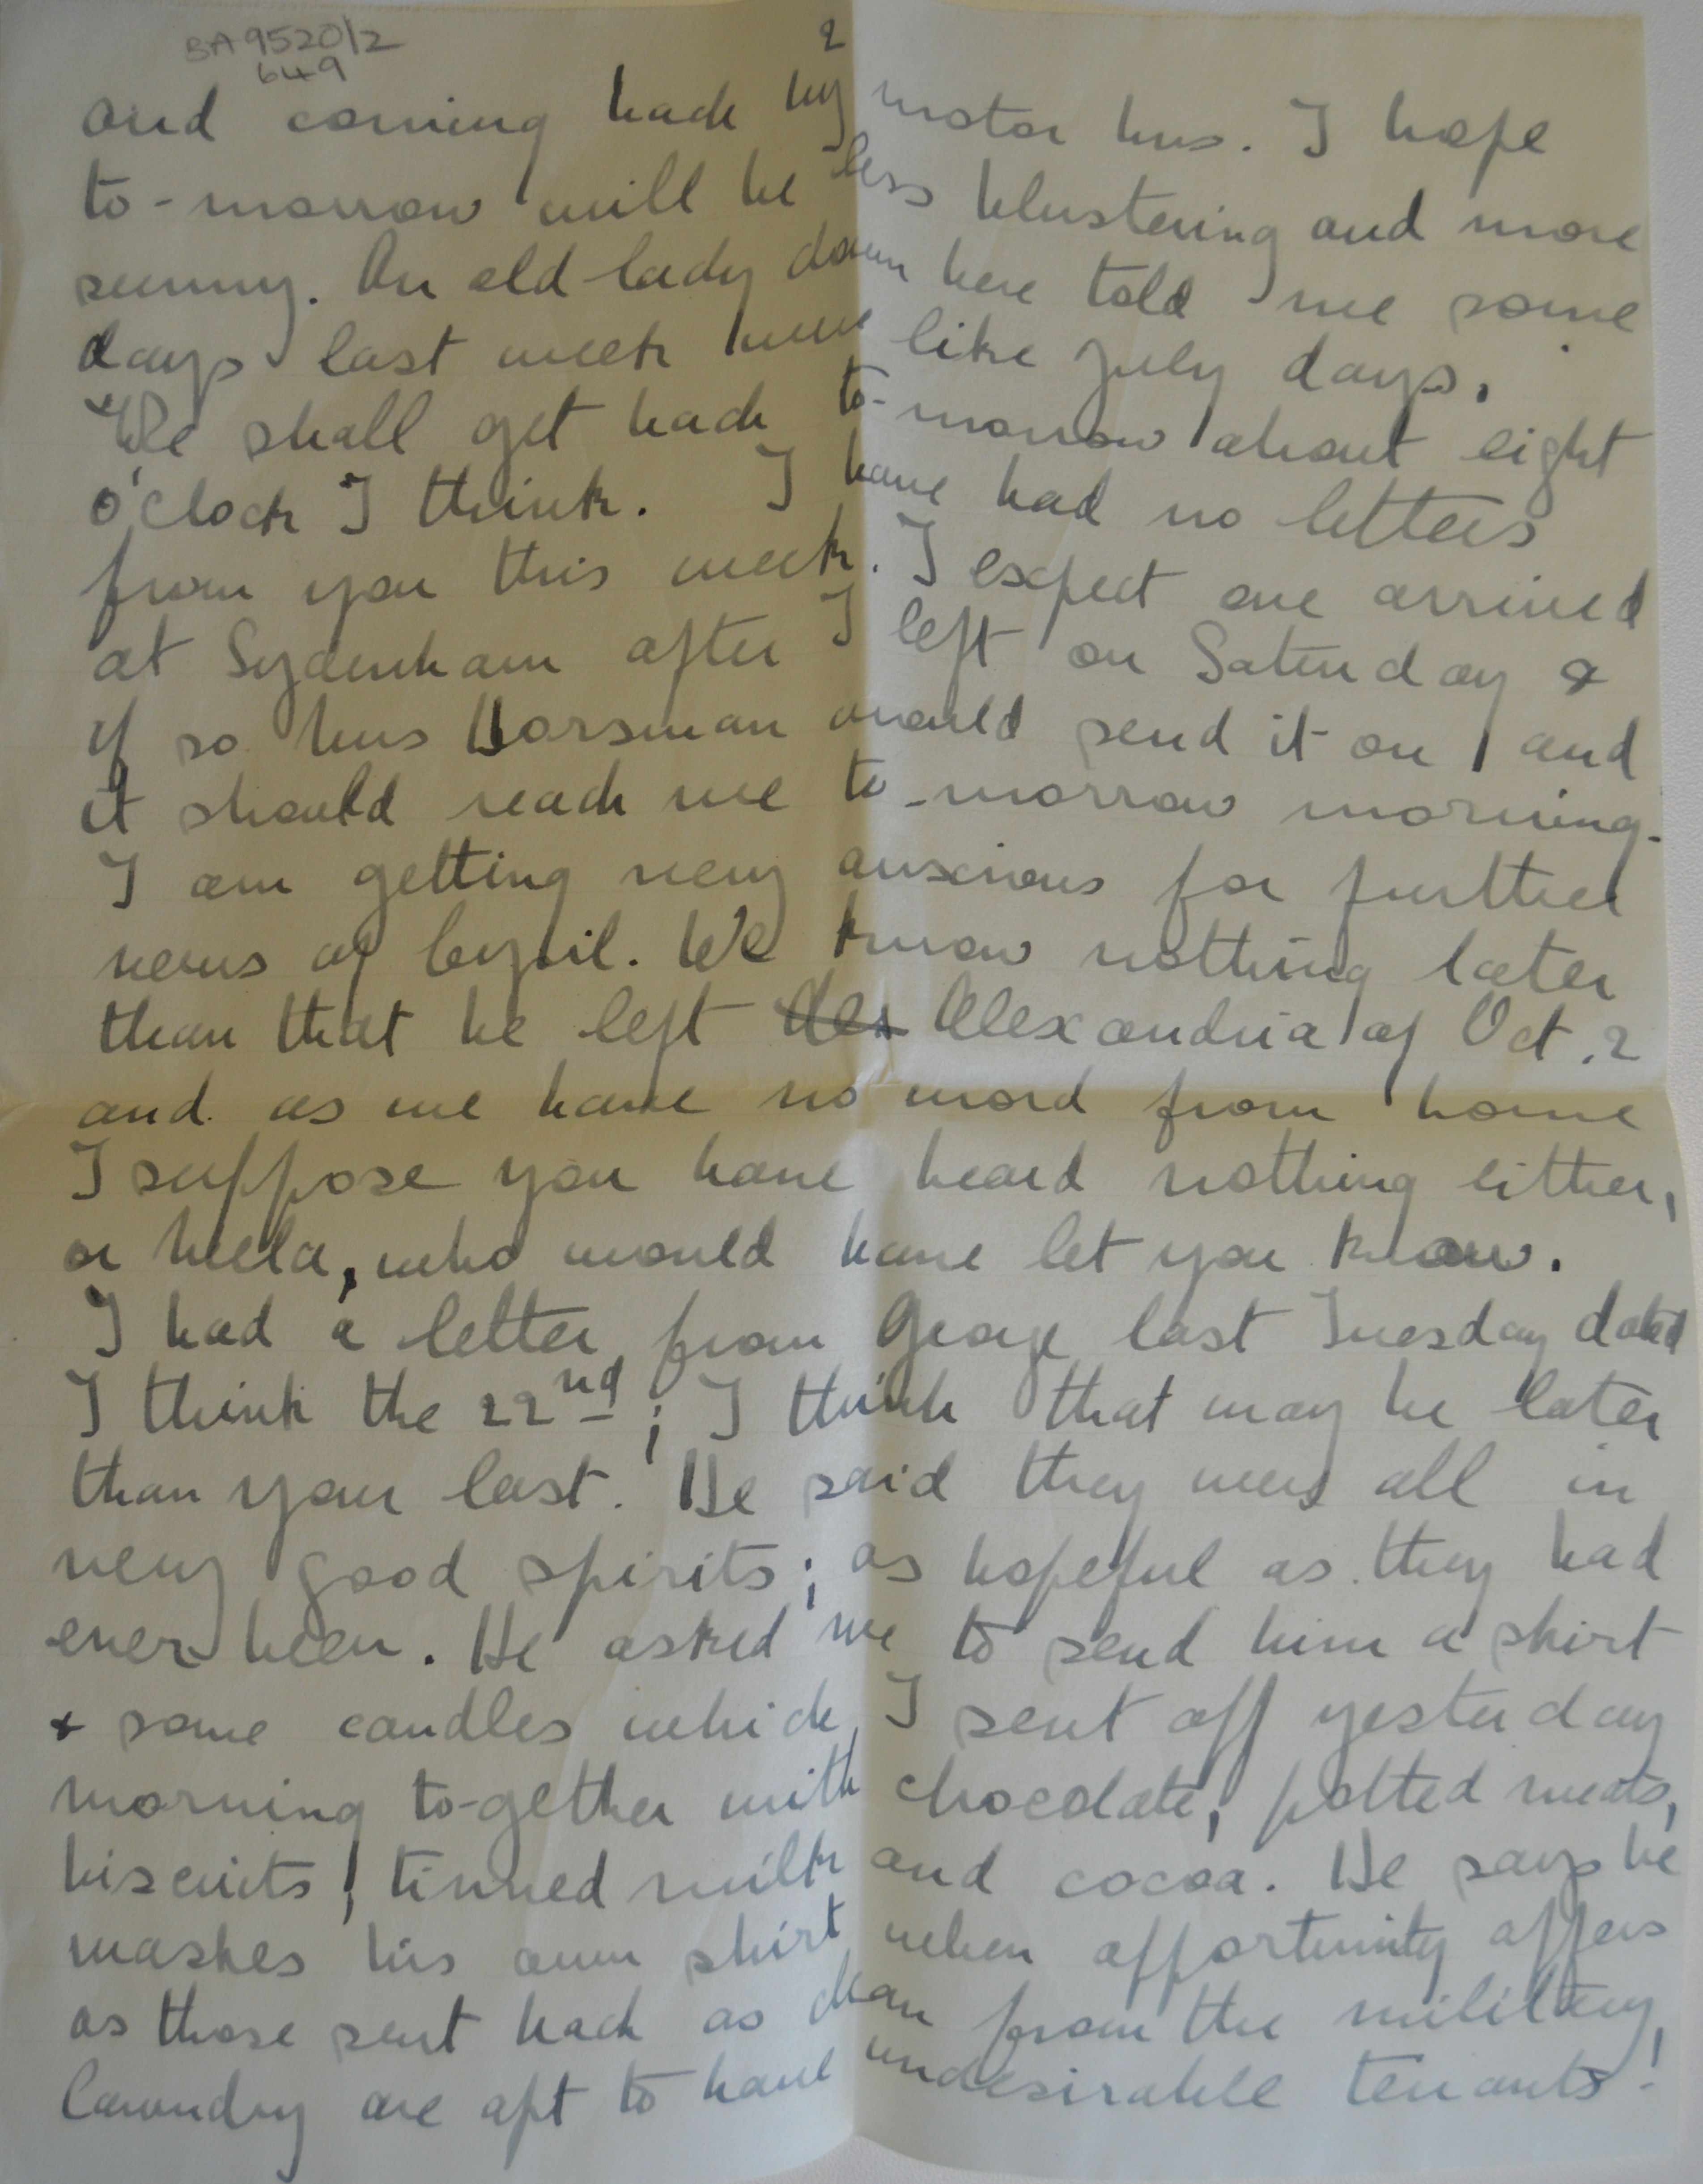 BA 9520/2
649
2
and coming back by motor bus. I hope
to-morrow will be less blustering and more
sunny. An old lady down here told me some
days last week were like July days.
We shall get back to-morrow about eight
o'clock I think. I have had no letters
from you this week. I expect one arrived
at Sydenham after I left on Saturday &
if so Mrs Horsman would send it on, and
it should reach me to-morrow morning.
I am getting very anxious for further
news of Cyril. We know nothing later
than that he left Alex Alexandria of Oct. 2
and as we have no word from home
I suppose you have heard nothing either,
or Mela, who would have let you know.
I had a letter from George last Tuesday dated
I think the 22nd; I think that may be later
than your last. He said they were all in
very good spirits; as hopeful as they had
ever been. He asked me to send him a shirt
& some candles which I sent off yesterday
morning to-gether with chocolate, potted meats,
biscuits, tinned milk and cocoa. He says he
washes his own shirt when opportunity offers
as those sent back as clean from the military
laundry are apt to have undesirable tenants!